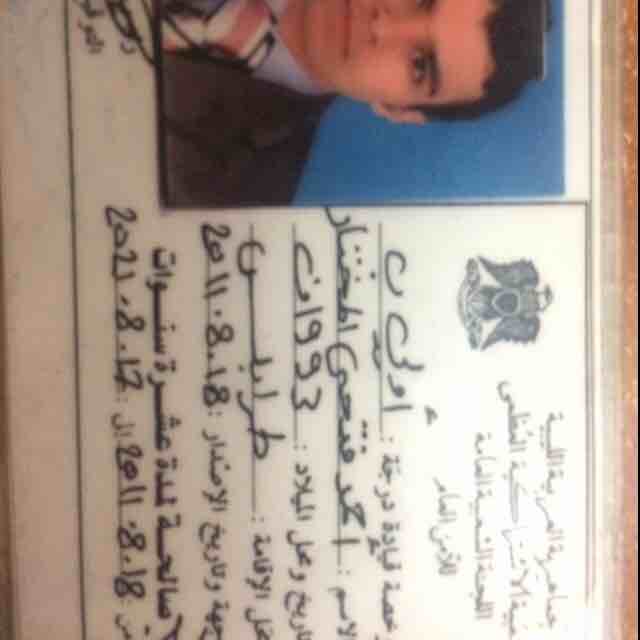 العربية الليبية
الاشتراكية العظمى
اللجنة الشعبية العامة
للأمن العام
رخصة قيادة درجة : أولى
الاسم : أحمد فتحي المختار
تاريخ ومحل الميلاد : 1993
محل الاقامة : طرابلس
جهة وتاريخ الاصدار : 2011.8.18
صالحة لمدة عشرة سنوات
من : 2011.8.18 الى : 2021.8.17